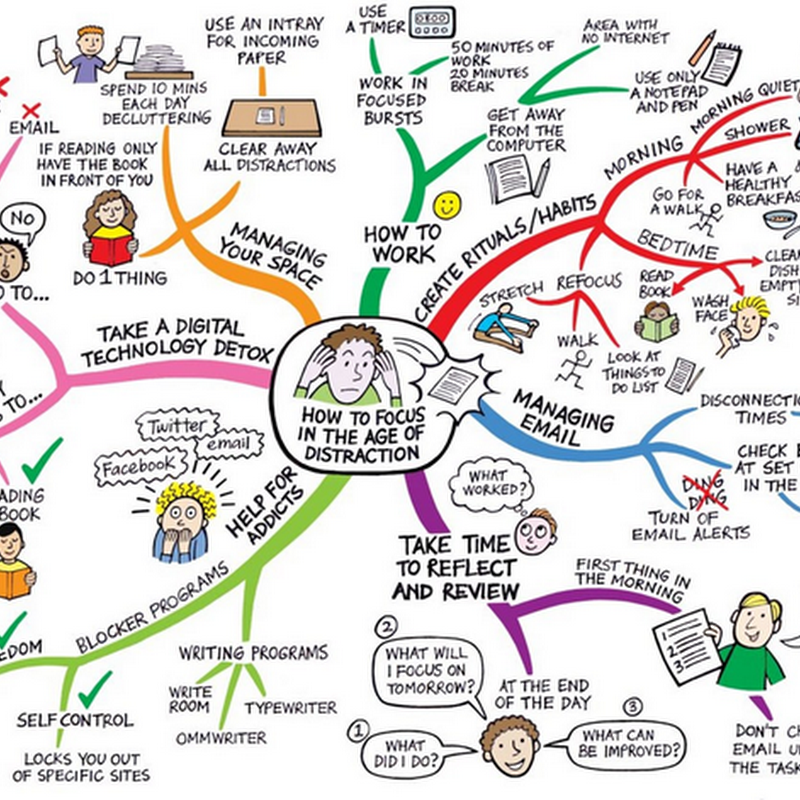 HOW TO FOCUS
IN THE AGE OF
DISTRACTION
HOW TO
WORK
WORK IN
FOCUSED
BURSTS
USE
A TIMER
50 MINUTES OF
WORK
20 MINUTES
BREAK
GET AWAY
FROM THE
COMPUTER
AREA WITH
NO INTERNET
USE ONLY
A NOTEPAD
AND PEN
CREATE RITUALS/HABITS
MORNING
MORNING QUIET
SHOWER
HAVE A
HEALTHY
BREAKFAS
GO FOR
A WALK
BEDTIME
READ
BOOK
WASH
FACE
CLEAN
DISH
EMPTY
SI
REFOCUS
STRETCH
WALK
LOOK AT
THINGS TO
DO LIST
MANAGING
EMAIL
DISCONNECTIO
TIMES
CHECK E
AT SET
IN THE
DING
DING
TURN OF
EMAIL ALERTS
TAKE TIME
TO REFLECT
AND REVIEW
WHAT
WORKED?
FIRST THING IN
THE MORNING
1
2
3
DON'T CH
EMAIL U
THE TASK
AT THE END
OF THE DAY
1
WHAT
DID I DO?
2
WHAT WILL
I FOCUS ON
TOMORROW?
3
WHAT CAN
BE IMPROVED?
HELP FOR
ADDICTS
Twitter
email
Facebook
BLOCKER PROGRAMS
EDOM
SELF CONTROL
LOCKS YOU OUT
OF SPECIFIC SITES
WRITING PROGRAMS
WRITE
ROOM
OMMWRITER
TYPEWRITER
TAKE A DIGITAL
TECHNOLOGY DETOX
EMAIL
NO
O TO...
Y
S TO...
ADING
BOOK
MANAGING
YOUR SPACE
SPEND 10 MINS
EACH DAY
DECLUTTERING
USE AN INTRAY
FOR INCOMING
PAPER
CLEAR AWAY
ALL DISTRACTIONS
IF READING ONLY
HAVE THE BOOK
IN FRONT OF YOU
DO 1 THING